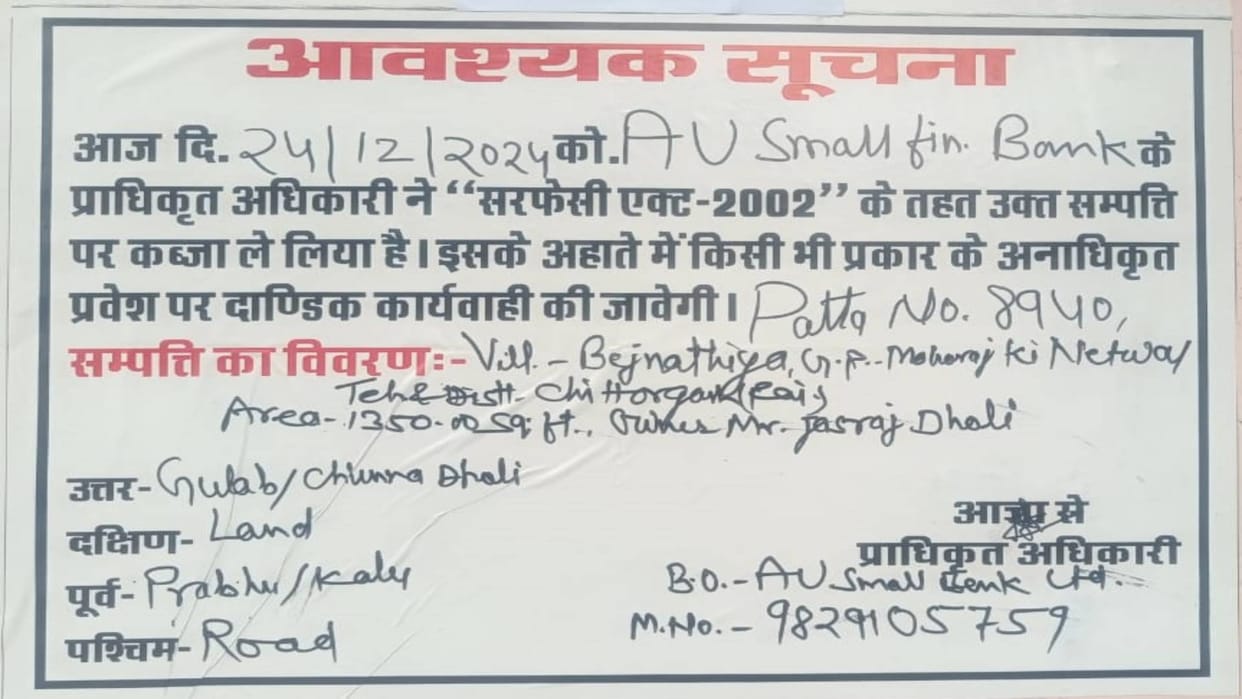 आवश्यक सूचना
आज दि. 24/12/2024 को. AU Small fin. Bank के
प्राधिकृत अधिकारी ने “सरफेसी एक्ट-2002” के तहत उक्त सम्पत्ति
पर कब्जा ले लिया है। इसके अहाते में किसी भी प्रकार के अनाधिकृत
प्रवेश पर दाण्डिक कार्यवाही की जावेगी। Patta No. 8940,
सम्पत्ति का विवरणः- Vill. - Bejnathiya, G.P.- Maharaj ki Netwal
Teh & Distt- Chittorgarh (Raj)
Area- 1350.00 Sq. ft., Owner Mr. Jasraj Dholi
उत्तर- Gulab/Chunna Dholi
दक्षिण- Land
पूर्व- Prabhu/Kalu
पश्चिम- Road
आज्ञा से
प्राधिकृत अधिकारी
B.O.- AU Small Bank Ltd.
M.No. -